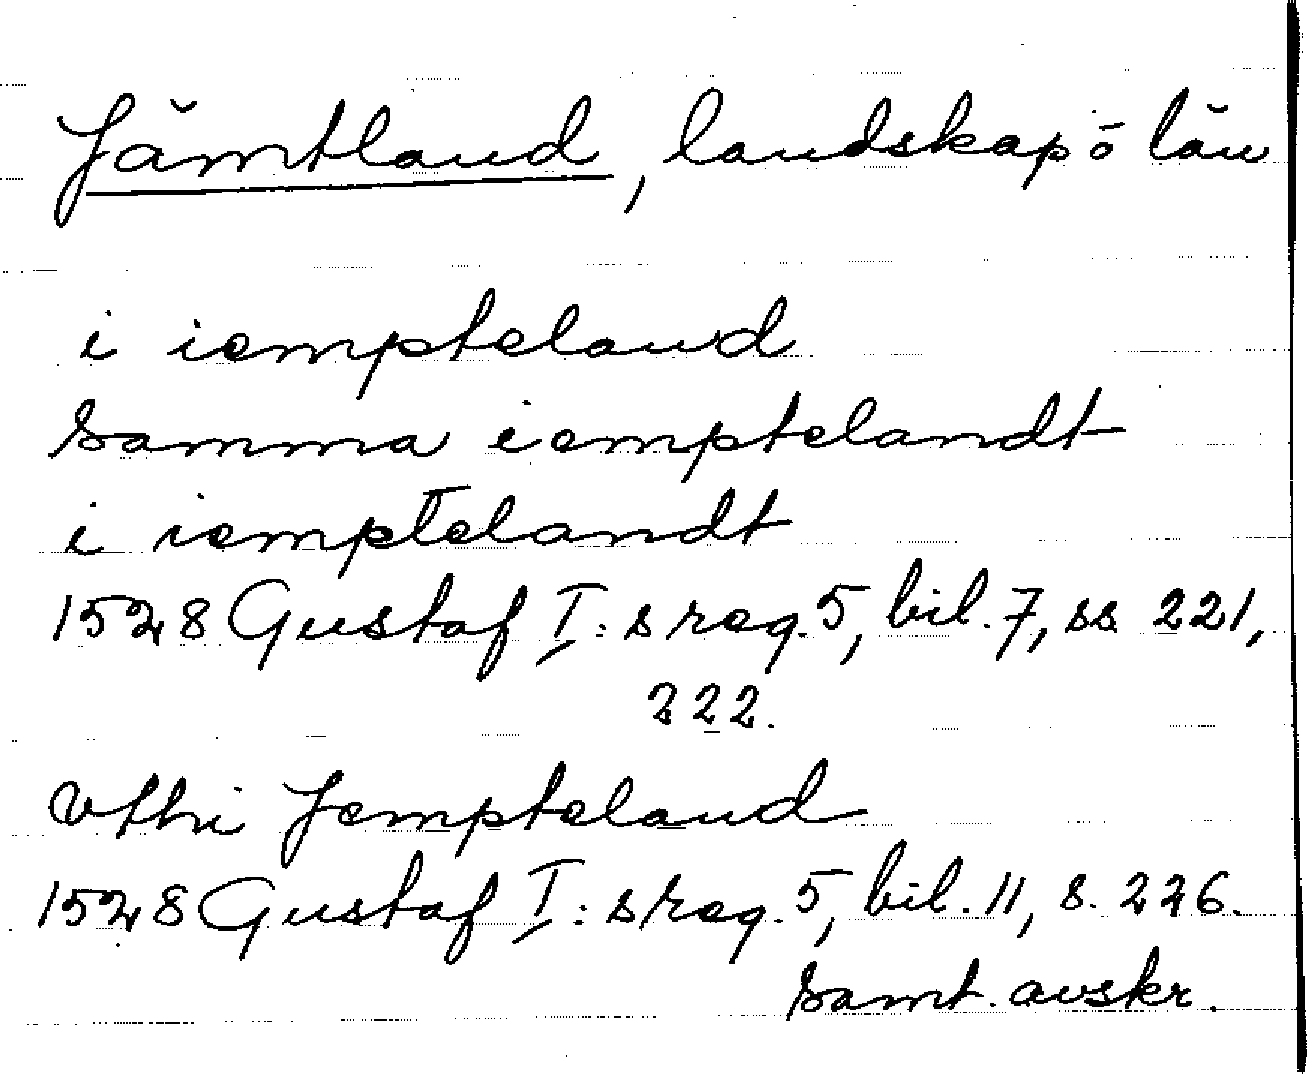 Jämtland, landskap ō län
i iempteland
samma iemptelandt
i iemptelandt
1528 Gustaf I:s reg. 5, bil. 7, ss. 221,
222.
vthi Jempteland
1528 Gustaf I:s reg. 5, bil. 11, s. 226.
Samt. avskr.